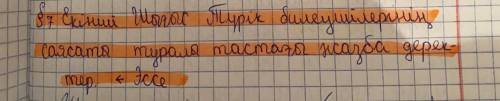 §7 Екінші Шығыс Түрік билеушілерінің
саясаты туралы тастағы жазба дерек-
тер. ← Эссе